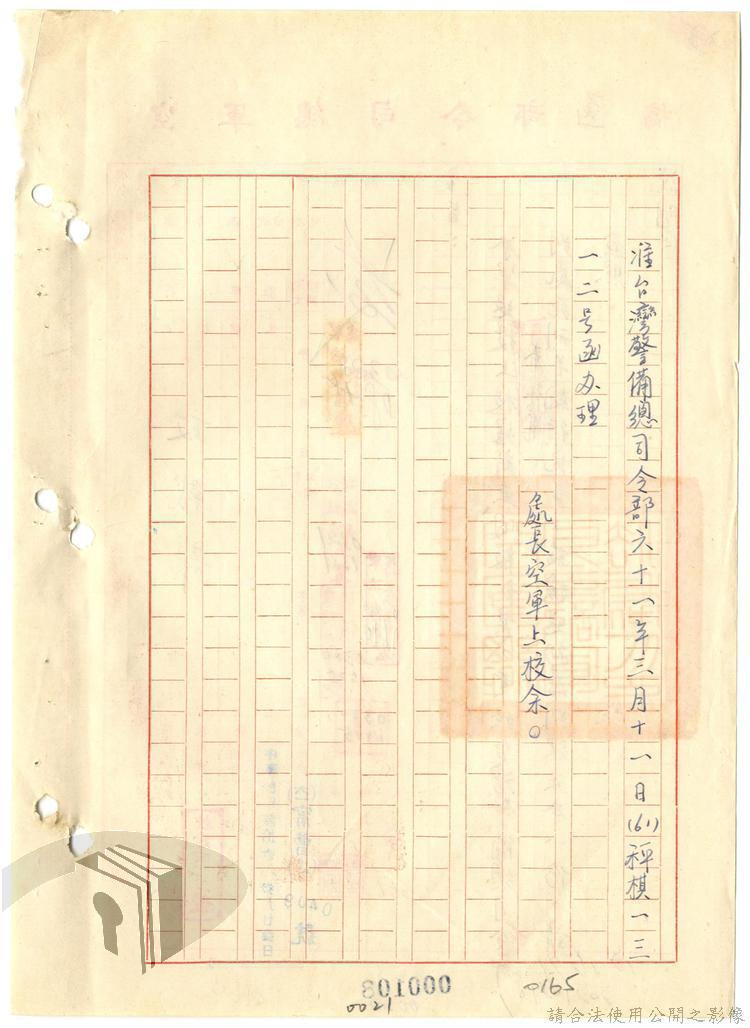 准台灣警備總司令部六十一年三月十一日(61)秤棋一三
一二号函办理
處長空軍上校余○
000103
0165
0021
請合法使用公開之影像